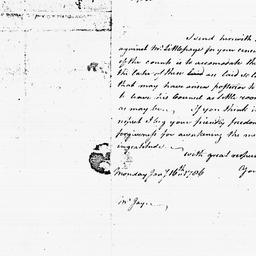 I send herewith
against Mr. Littlepage for your
of the county is to accomodate th
the date of these laid as laid
that may have arisen posterior to
to leave his Counsel as little room
as may be. If you think it
reject I beg your friendly freedom
forgiveness for awakening the
ingratitude.
with great respect
You
Monday Jany. 16th. 1786
Mr. Jay